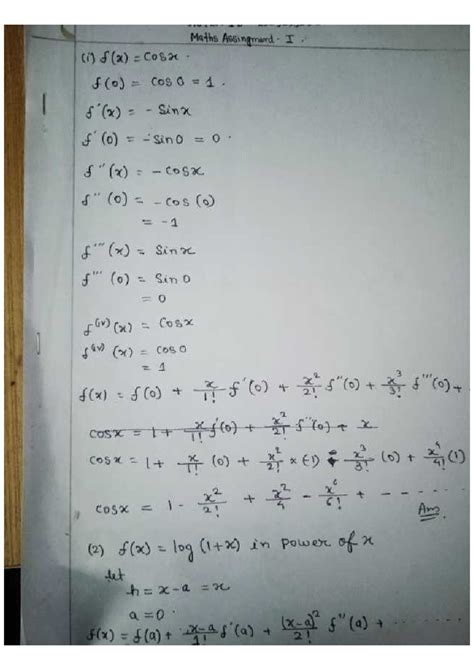 Maths Assingment - I.
(i) f(x) = cosx.
f(0) = cos 0 = 1.
f'(x) = - Sinx
f'(0) = - Sin0 = 0.
f''(x) = - cosx
f''(0) = - cos (0)
= -1
f'''(x) = Sinx
f'''(0) = Sin 0
= 0
f⁽ⁱᵛ⁾(x) = Cosx
f⁽ⁱᵛ⁾(x) = cos0
= 1
f(x) = f(0) + x/1! f'(0) + x²/2! f''(0) + x³/3! f'''(0) +
cosx = 1 + x/1! f'(0) + x²/2! f''(0) + x
cosx = 1 + x/1! (0) + x²/2! × (-1) + x³/3! (0) + x⁴/4! (1)
cosx = 1 - x²/2! + x²/4 - x⁶/6! + - - - - - -
Ans.
(2) f(x) = log (1+x) in power of x
let
h = x - a = x
a = 0.
f(x) = f(a) + x-a/1! f'(a) + (x-a)²/2! f''(a) + ......